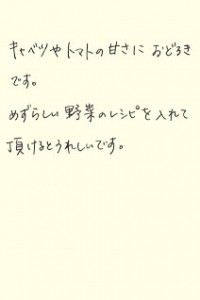 キャベツやトマトの甘さに おどろき
です。
めずらしい野菜のレシピを入れて
頂けるとうれしいです。